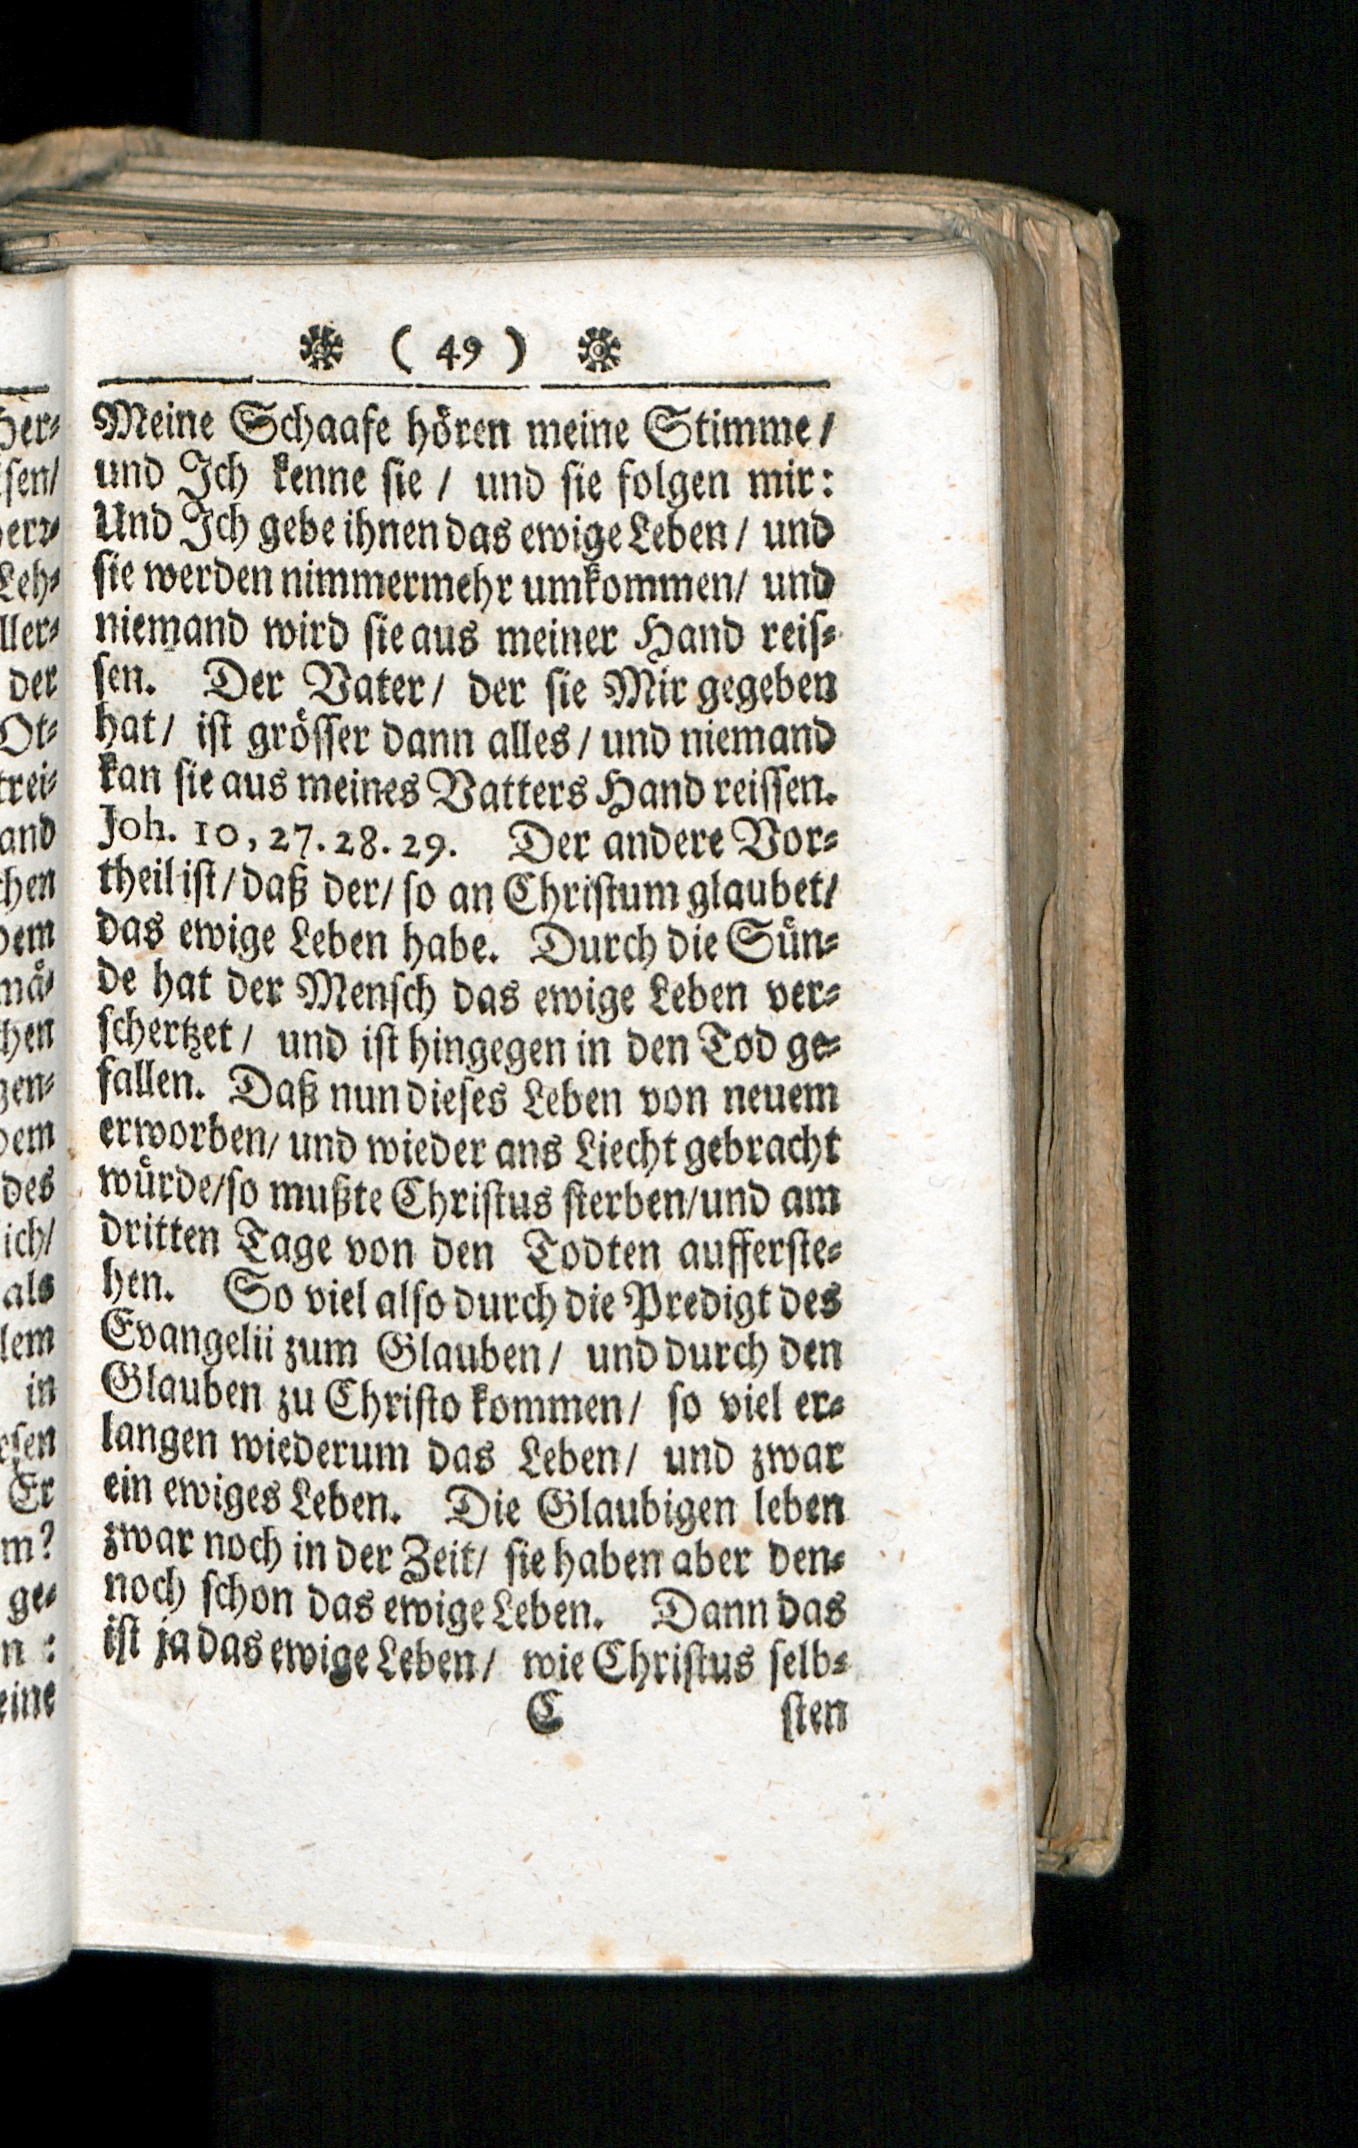 ( 49 )
Meine Schaafe hören meine Stimme /
und Ich kenne sie / und sie folgen mir:
Und Ich gebe ihnen das ewige Leben / und
sie werden nimmermehr umkommen / und
niemand wird sie aus meiner Hand reis-
sen. Der Vater / der sie Mir gegeben
hat / ist grösser dann alles / und niemand
kan sie aus meines Vatters Hand reissen.
Joh. 10, 27. 28. 29. Der andere Vor-
theil ist / daß der / so an Christum glaubet /
das ewige Leben habe. Durch die Sün-
de hat der Mensch das ewige Leben ver-
schertzet / und ist hingegen in den Tod ge-
fallen. Daß nun dieses Leben von neuem
erworben / und wieder ans Liecht gebracht
würde / so mußte Christus sterben / und am
dritten Tage von den Todten aufferste-
hen. So viel also durch die Predigt des
Evangelii zum Glauben / und durch den
Glauben zu Christo kommen / so viel er-
langen wiederum das Leben / und zwar
ein ewiges Leben. Die Glaubigen leben
zwar noch in der Zeit / sie haben aber den-
noch schon das ewige Leben. Dann das
ist ja das ewige Leben / wie Christus selb-
C sten